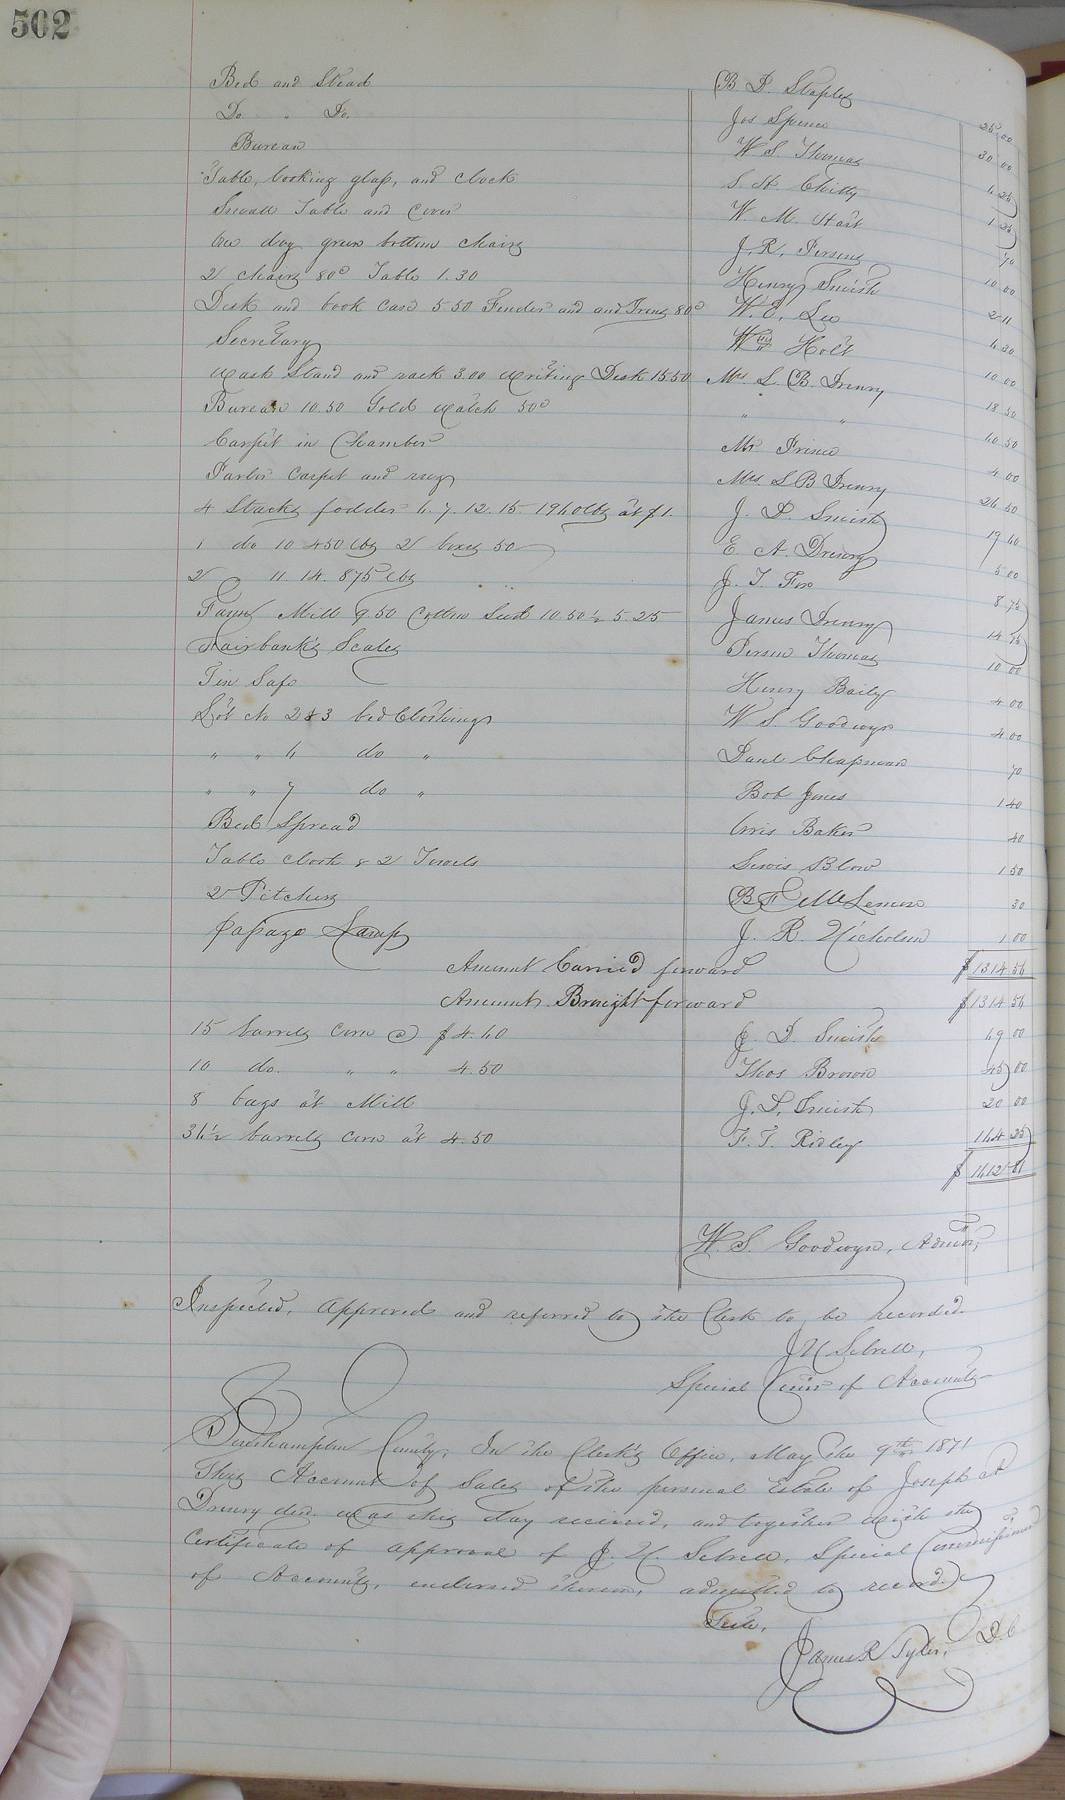 502
Bed and Stead B. D. Staples 25 00
Do " Do. Jos Spence 30 00
Bureau W S Thomas 6 25
Table, looking glass, and clock S. H. Chitty 1 25
Small Table and Cover W. M. Hart 70
One doz green bottom chairs J. R. Persons 10 00
2 chairs 80c Table 1.30 Henry Smith 2 11
Desk and book case 5.50 Fender and and Irons 80c W. E. Lee 6 30
Secretary Wm Holt 10 00
Wash Stand and rack 3.00 Writing Desk 15.50 Mrs L. B. Drewry 18 50
Bureau 10.50 Gold Watch 50c " " 60 50
Carpet in Chamber Mr Prince 4 00
Parlor Carpet and rug Mrs L B Drewry 26 50
4 Stacks fodder 6. 7. 12. 15. 1960 lbs at $1. J. D. Smith 19 60
1 do 10 450 lbs 2 boxes 50 E. A. Drewry 5 00
2 11. 14. 875 lbs J. T. Fox 8 75
Fann Mill 9.50 Cotton Seed 10.50 ½ 5.25 James Drewry 14 75
Fairbank's Scales Person Thomas 10 00
Tin Safe Henry Baily 4 00
Lot No 2 & 3 bed Clothing W S. Goodwyn 4 00
" " 6 do " Paul Chapman 70
" " 7 do " Bob Jones 1 40
Bed Spread Orris Baker 40
Table cloth & 2 Towels Lewis Blow 1 50
2 Pitchers B F McLemore 30
Passage Lamp J. R. Nicholson 1 00
Amount Carried forward $1314 56
Amount Brought forward $1314 56
15 barrels corn @ $4.60 J. D. Smith 69 00
10 do. " " 4.50 Thos Brown 45 00
8 bags at Mill J. D. Smith 20 00
36½ barrels corn at 4.50 F. T. Ridley 164 25
$1612 81
W. S. Goodwyn, Admor,
Inspected, approved and referred to the Clerk to be recorded.
J U Sebrell,
Special Comr of Accounts
Southampton County, In the Clerk's Office, May the 9th 1871
This Account of Sales of the personal Estate of Joseph A
Drewry decd. was this day received, and together with the
Certificate of approval of J. U. Sebrell, Special Commissioner
of Accounts, endorsed thereon, admitted to record.
Teste,
James R Tyler, D. C.